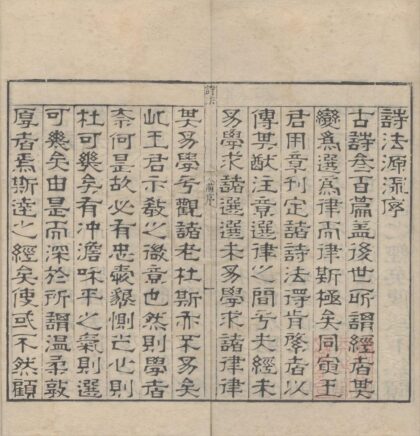 詩法源流序
古詩叁百篇蓋後世所謂經者其
變為選為律而律斯極矣同寅王
君用章刊定諸詩法肯綮者以
傳其猷注意選律之間乎夫經未
易學求諸選選未易學求諸律律
詩法 序 一
其易學乎觀諸老杜斯亦不易矣
此王君示教之微意也然則學者
奈何是故必有忠惻怛之心則
杜可幾矣有冲澹咊平之氣則選
可幾矣由是而深於所謂溫柔敦
厚者焉斯達之經矣使或不然顧